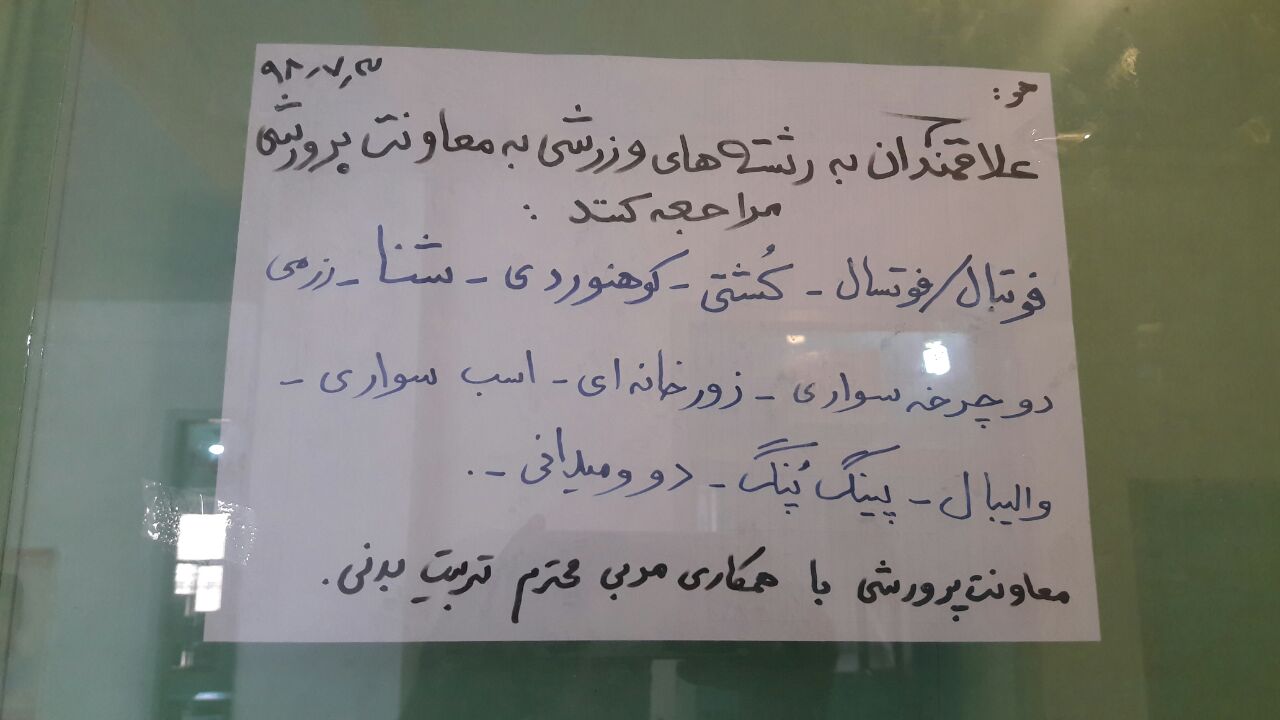 هو: ۹۸٫۷٫۳
علاقمندان به رشته های ورزشی به معاونت پرورشی
مراجعه کنند :
فوتبال/فوتسال - کُشتی - کوهنوردی - شنا - رزمی
دوچرخه سواری - زورخانه ای - اسب سواری -
والیبال - پینگ پُنگ - دو و میدانی - .
معاونت پرورشی با همکاری مربی محترم تربیت بدنی .